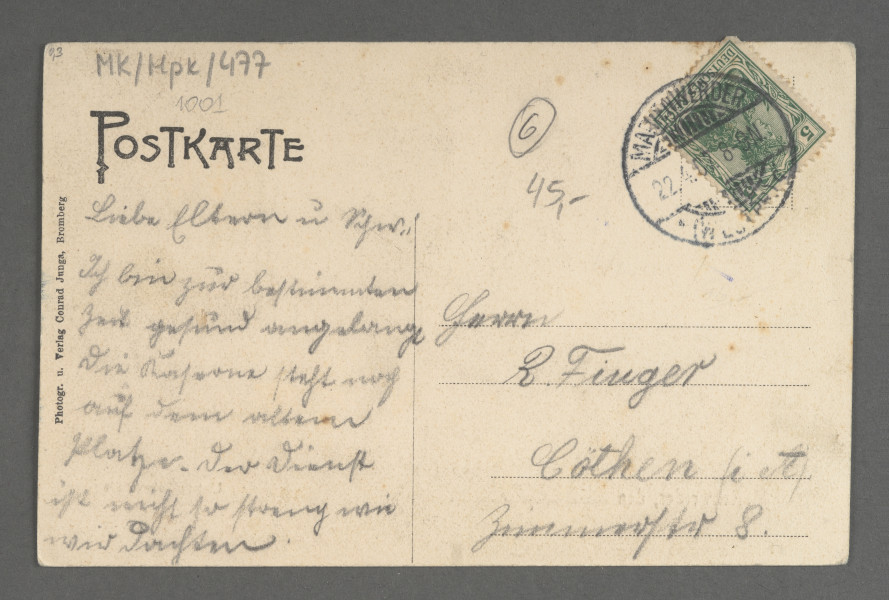 93
MK/Mpk/477
1001
POSTKARTE
6
45,-
MARIENWERDER
22.4.
(WESTPR.)
DEUT
5
Photogr. u. Verlag Conrad Junga, Bromberg
Liebe Eltern u Schw.,
Ich bin zur bestimmten
Zeit gesund angelangt
Die Kaserne steht noch
auf dem altem
Platze. Der Dienst
ist nicht so streng wie
wir dachten.
Herrn
R. Finger
Cöthen (i A)
Zimmerstr 8.